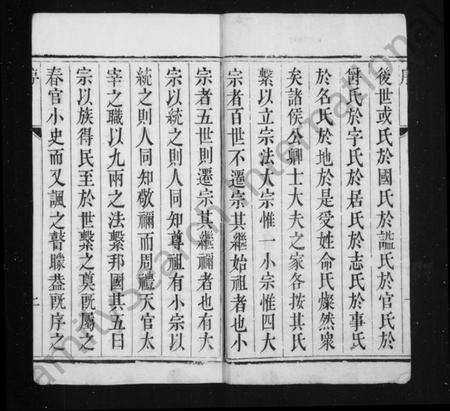 序
後世或氏於國氏於謚氏於官氏於
爵氏於字氏於居氏於志氏於事氏
於名氏於地於是受姓命氏燦然衆
矣諸侯公卿士大夫之家各按其氏
繫以立宗法大宗惟一小宗惟四大
宗者百世不遷宗其繼始祖者也小
宗者五世則遷宗其繼禰者也有大
宗以統之則人同知尊祖有小宗以
統之則人同知敬禰而周禮天官太
宰之職以九兩之法繫邦國其五曰
宗以族得民至於世繫之奠旣屬之
春官小史而又諷之瞽矇蓋旣序之
序
FamilySearch International